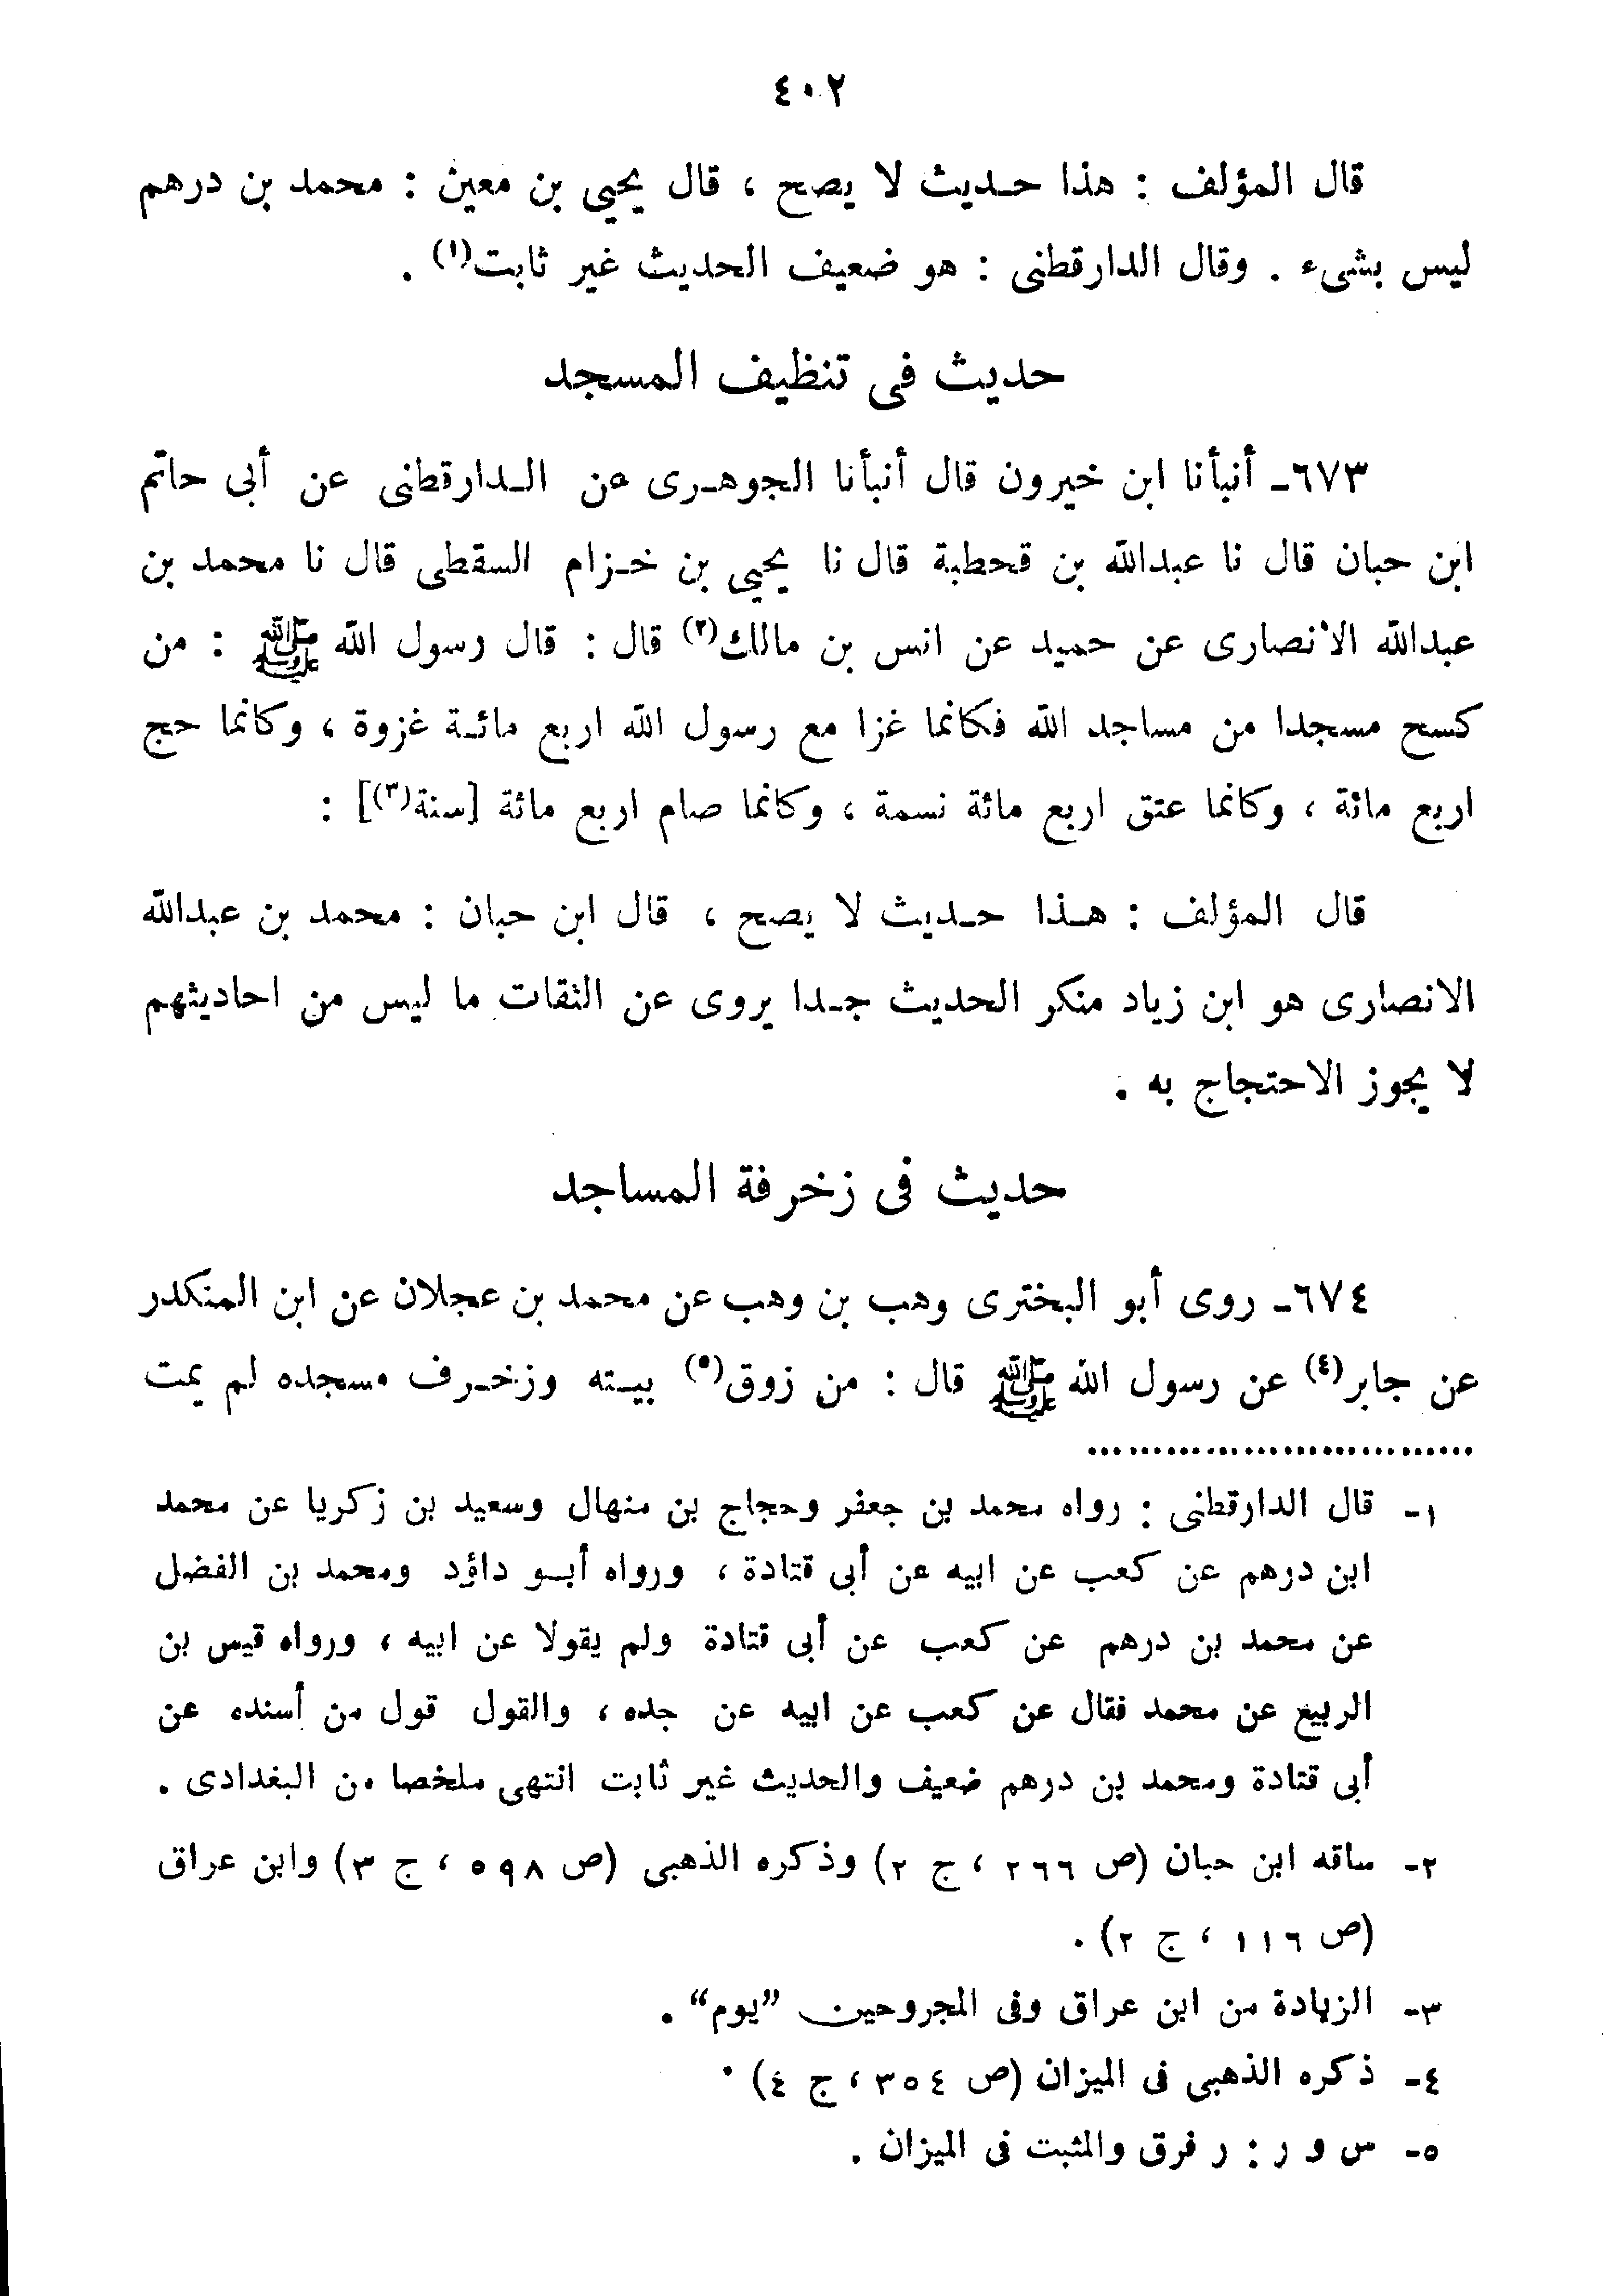 ٤٠٢
قال المؤلف : هذا حديث لا يصح ، قال يحيى بن معين : محمد بن درهم
ليس بشىء . وقال الدارقطنى : هو ضعيف الحديث غير ثابت(١) .
حديث فى تنظيف المسجد
٦٧٣- أنبأنا ابن خيرون قال أنبأنا الجوهرى عن الدارقطنى عن أبى حاتم
ابن حبان قال نا عبدالله بن قحطبة قال نا يحيى بن خزام السقطى قال نا محمد بن
عبدالله الانصارى عن حميد عن انس بن مالك(٢) قال : قال رسول الله ﷺ : من
كسح مسجدا من مساجد الله فكانما غزا مع رسول الله اربع مائة غزوة ، وكانما حج
اربع مائة ، وكانما عتق اربع مائة نسمة ، وكانما صام اربع مائة [سنة(٣)] :
قال المؤلف : هذا حديث لا يصح ، قال ابن حبان : محمد بن عبدالله
الانصارى هو ابن زياد منكر الحديث جدا يروى عن الثقات ما ليس من احاديثهم
لا يجوز الاحتجاج به .
حديث فى زخرفة المساجد
٦٧٤- روى أبو البخترى وهب بن وهب عن محمد بن عجلان عن ابن المنكدر
عن جابر(٤) عن رسول الله ﷺ قال : من زوق(٥) بيته وزخرف مسجده لم يمت
..............................
١- قال الدارقطنى : رواه محمد بن جعفر وحجاج بن منهال وسعيد بن زكريا عن محمد
ابن درهم عن كعب عن ابيه عن أبى قتادة ، ورواه أبو داؤد ومحمد بن الفضل
عن محمد بن درهم عن كعب عن أبى قتادة ولم يقولا عن ابيه ، ورواه قيس بن
الربيع عن محمد فقال عن كعب عن ابيه عن جده ، والقول قول من أسنده عن
أبى قتادة ومحمد بن درهم ضعيف والحديث غير ثابت انتهى ملخصا من البغدادى .
٢- ساقه ابن حبان (ص ٢٦٦ ، ج ٢) وذكره الذهبى (ص ٥٩٨ ، ج ٣) وابن عراق
(ص ١١٦ ، ج ٢) .
٣- الزيادة من ابن عراق وفى المجروحين ”يوم“ .
٤- ذكره الذهبى فى الميزان (ص ٣٥٤ ، ج ٤) .
٥- س و ر : ر فرق والمثبت فى الميزان .